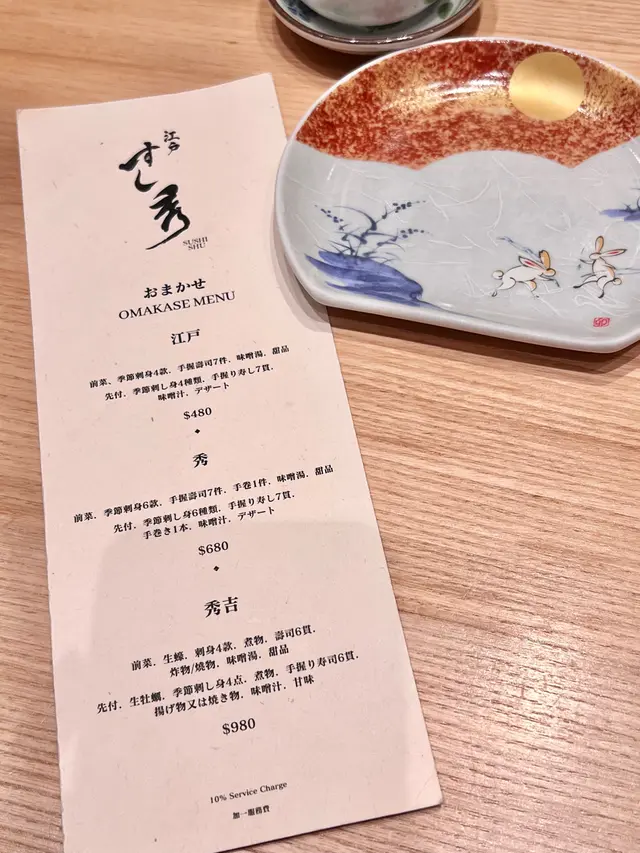 江戸
すし秀
SUSHI
SHU
おまかせ
OMAKASE MENU
江戸
前菜、季節刺身4款，手握壽司7件，味噌湯，甜品
先付，季節刺し身4種類，手握り寿し7貫，
味噌汁，デザート
$480
秀
前菜，季節刺身6款，手握壽司7件，手巻1件，味噌湯，甜品
先付，季節刺し身6種類，手握り寿し7貫，
手巻き1本，味噌汁，デザート
$680
秀吉
前菜，生蠔，刺身4款，煮物，壽司6貫，
炸物/燒物，味噌湯，甜品
先付，生牡蠣，季節刺し身4点，煮物，手握り寿司6貫，
揚げ物又は焼き物，味噌汁，甘味
$980
10% Service Charge
加一服務費